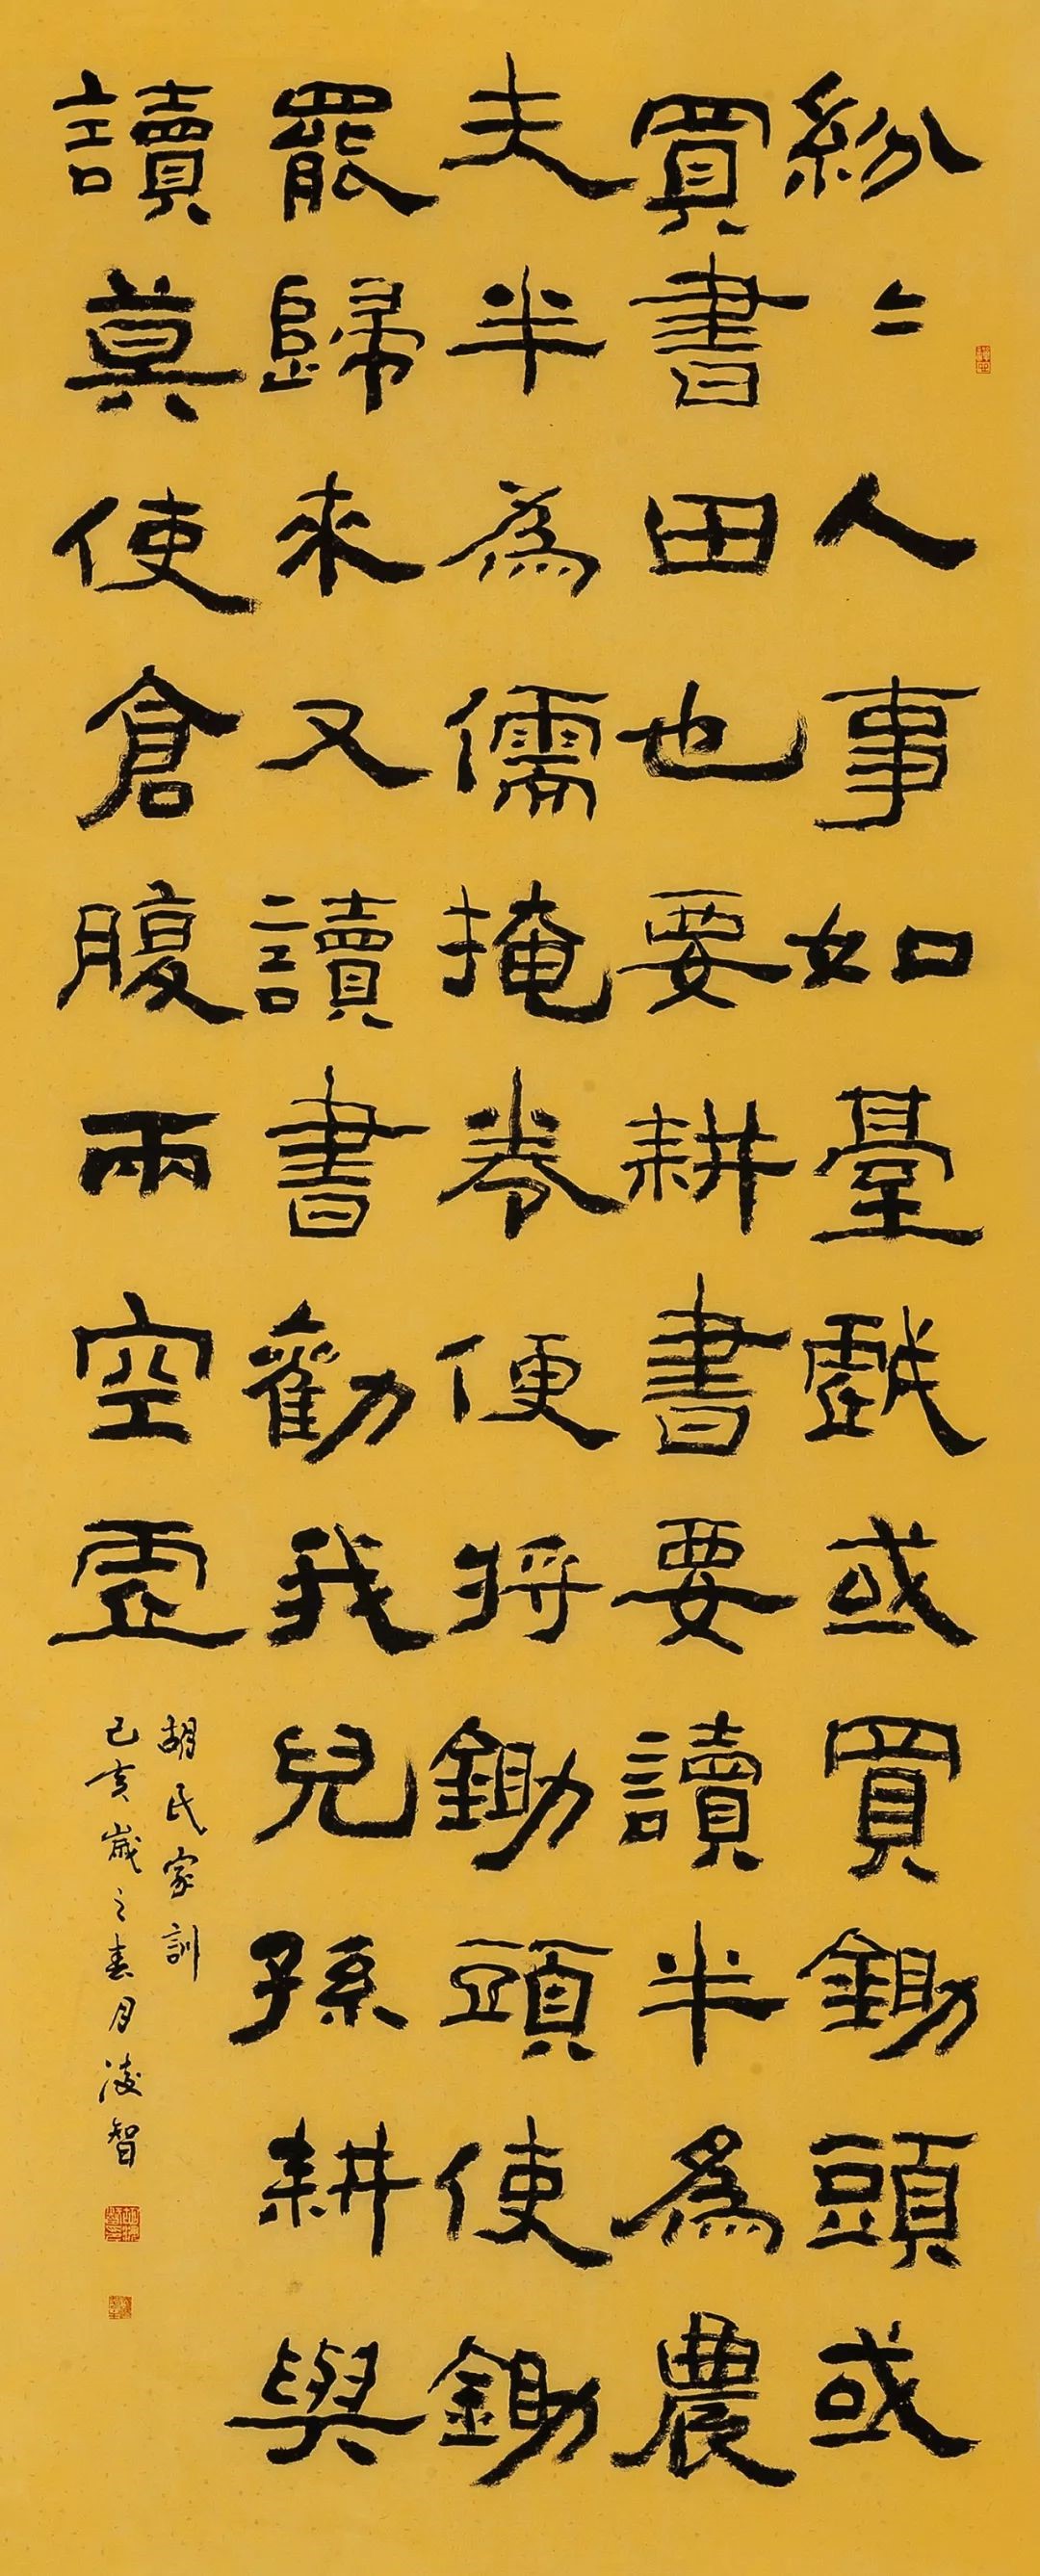 紛〻人事如臺戲或買鋤頭或
買書田也要耕書要讀半為農
夫半為儒掩卷便將鋤頭使鋤
罷歸來又讀書勸我兒孫耕與
讀莫使倉腹兩空虛
胡氏家訓
己亥歲之春月凌智